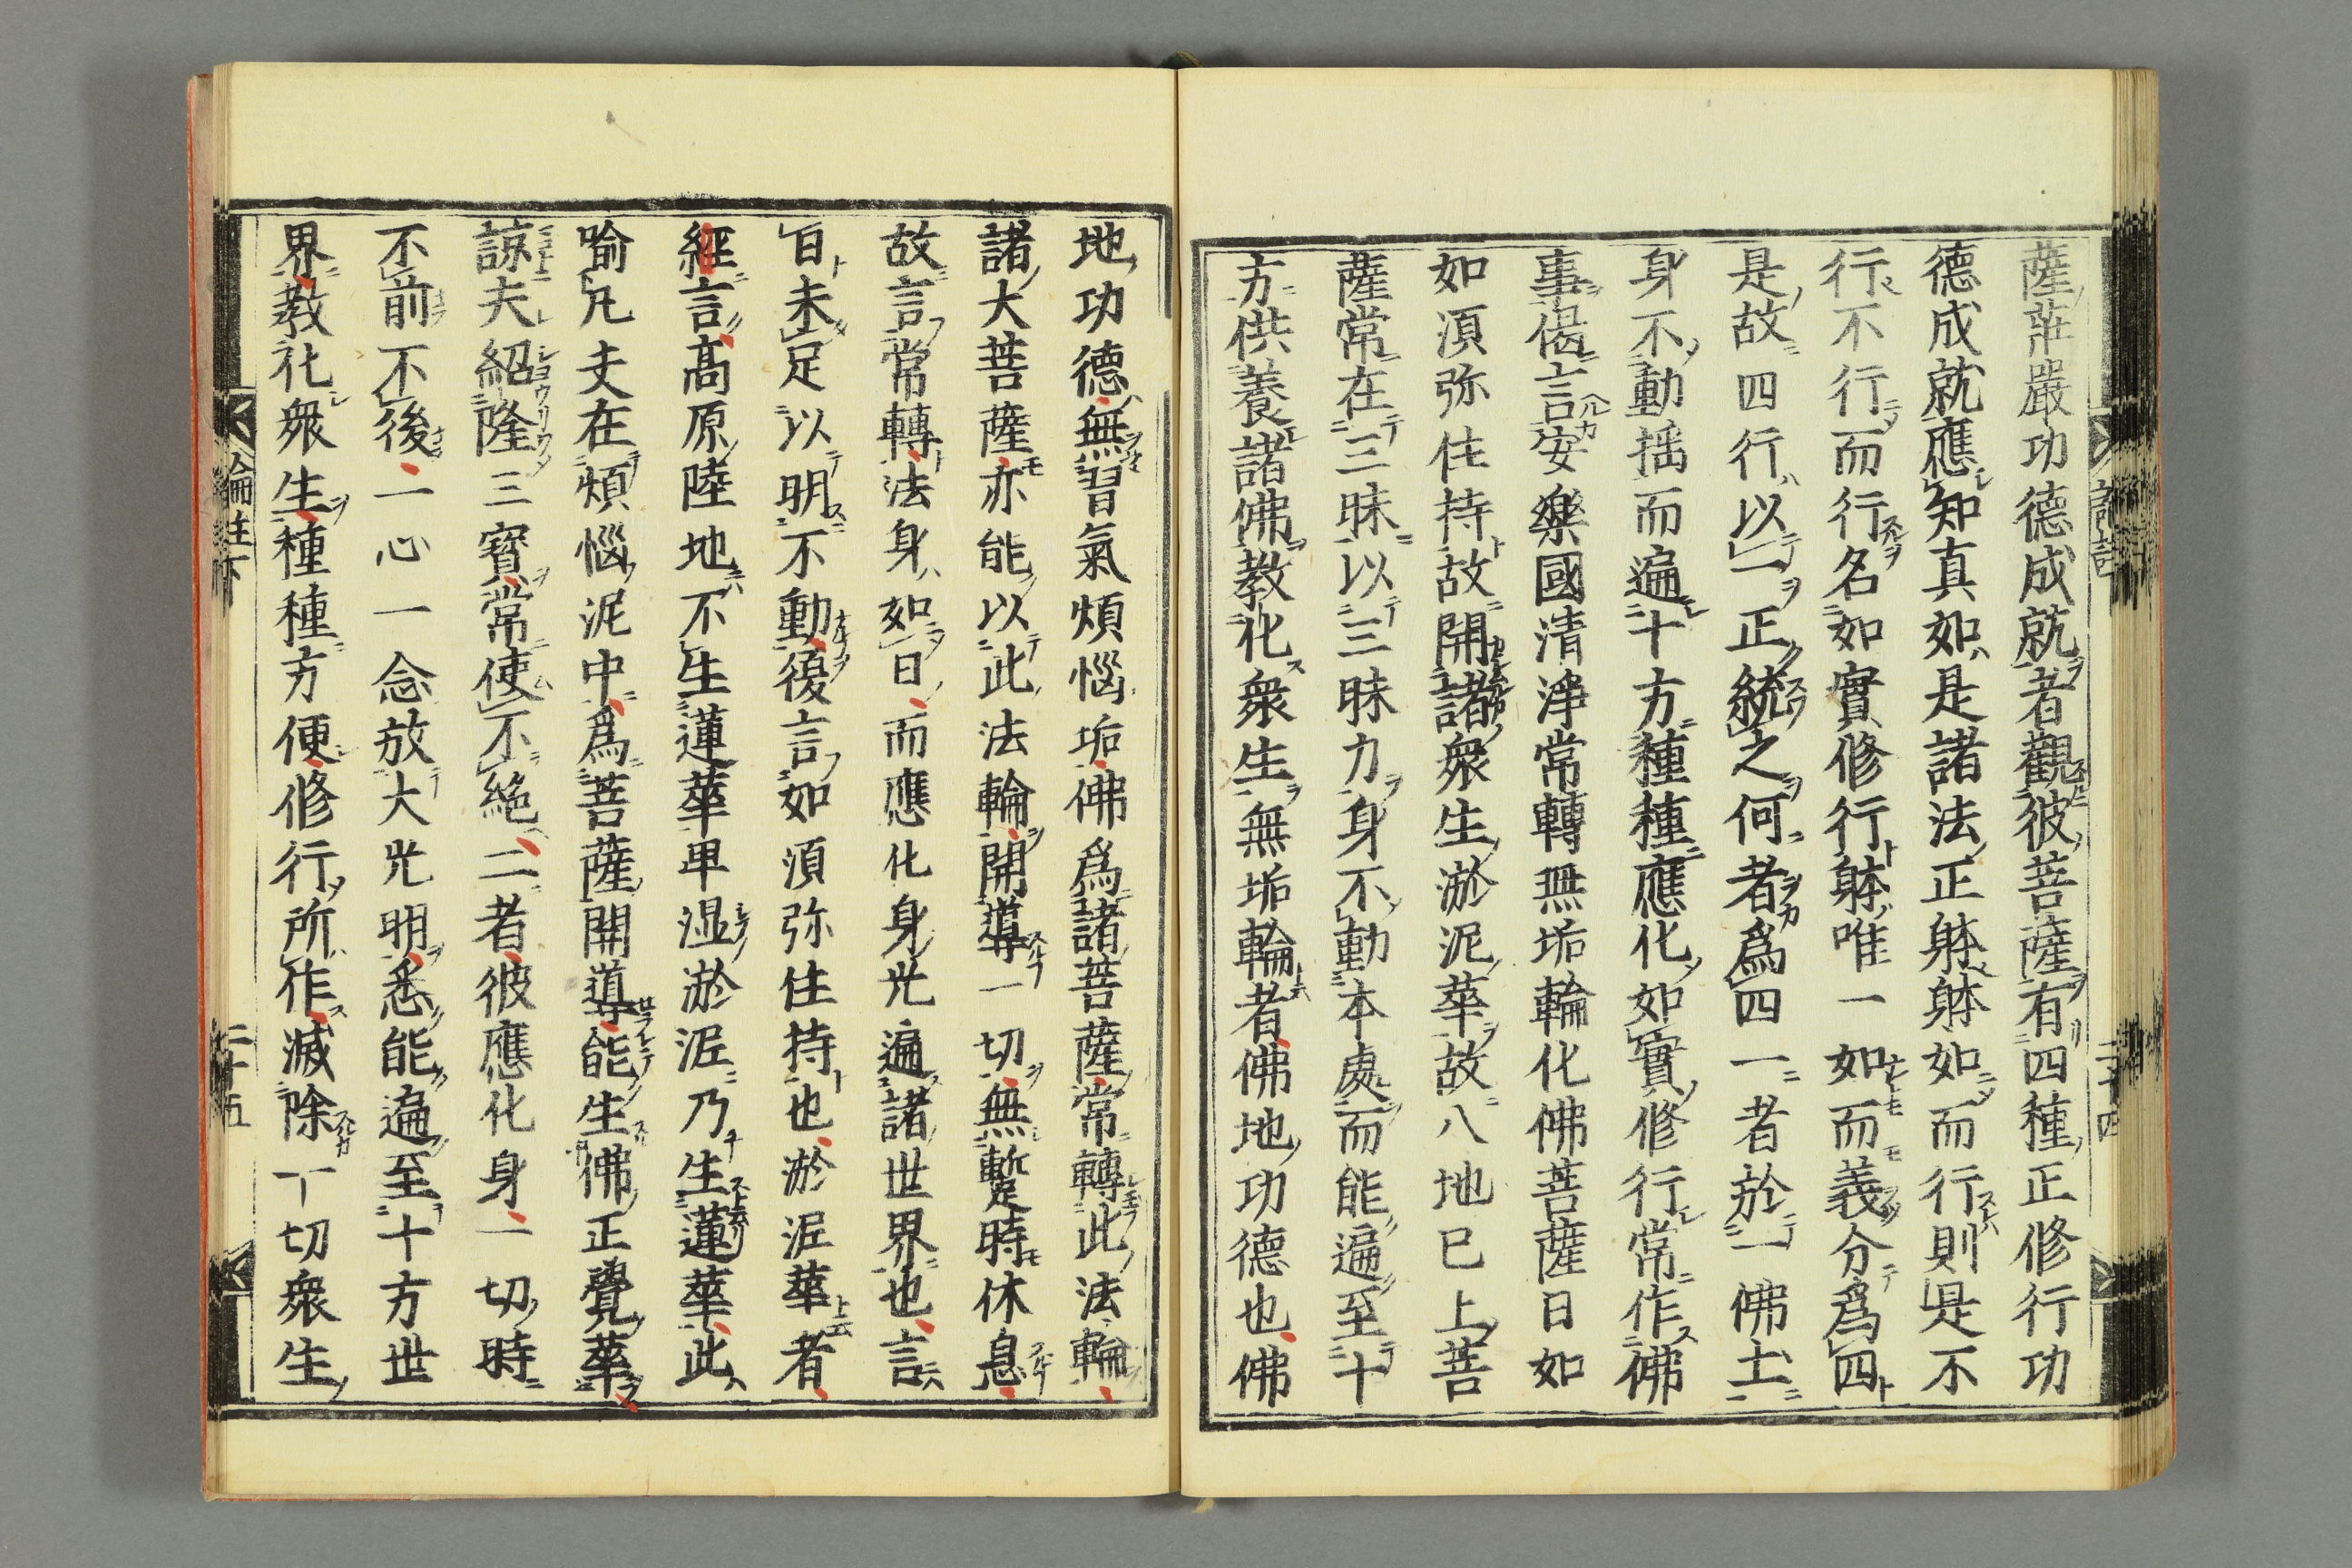 薩莊嚴功德成就者觀彼菩薩有四種正修行功
德成就應知真如是諸法正躰躰如而行則是不
行不行而行名如實修行躰唯一如而義分爲四
是故四行以一正統之何者爲四一者於一佛土
身不動揺而遍十方種種應化如實修行常作佛
事偈言安樂國清淨常轉無垢輪化佛菩薩日如
如湏弥住持故開諸衆生淤泥華故八地已上菩
薩常在三昧以三昧力身不動本處而能遍至十
方供養諸佛教化衆生無垢輪者佛地功德也佛
二十四
地功德無習氣煩惱垢佛爲諸菩薩常轉此法輪
諸大菩薩亦能以此法輪開導一切無蹔時休息
故言常轉法身如日而應化身光遍諸世界也言
日未足以明不動復言如湏弥住持也淤泥華者
經言高原陸地不生蓮華卑湿淤泥乃生蓮華此
喻凡夫在煩惱泥中爲菩薩開導能生佛正覺華
諒夫紹隆三寳常使不絶二者彼應化身一切時
不前不後一心一念放大光明悉能遍至十方世
界教化衆生種種方便修行所作滅除一切衆生
論註下
二十五